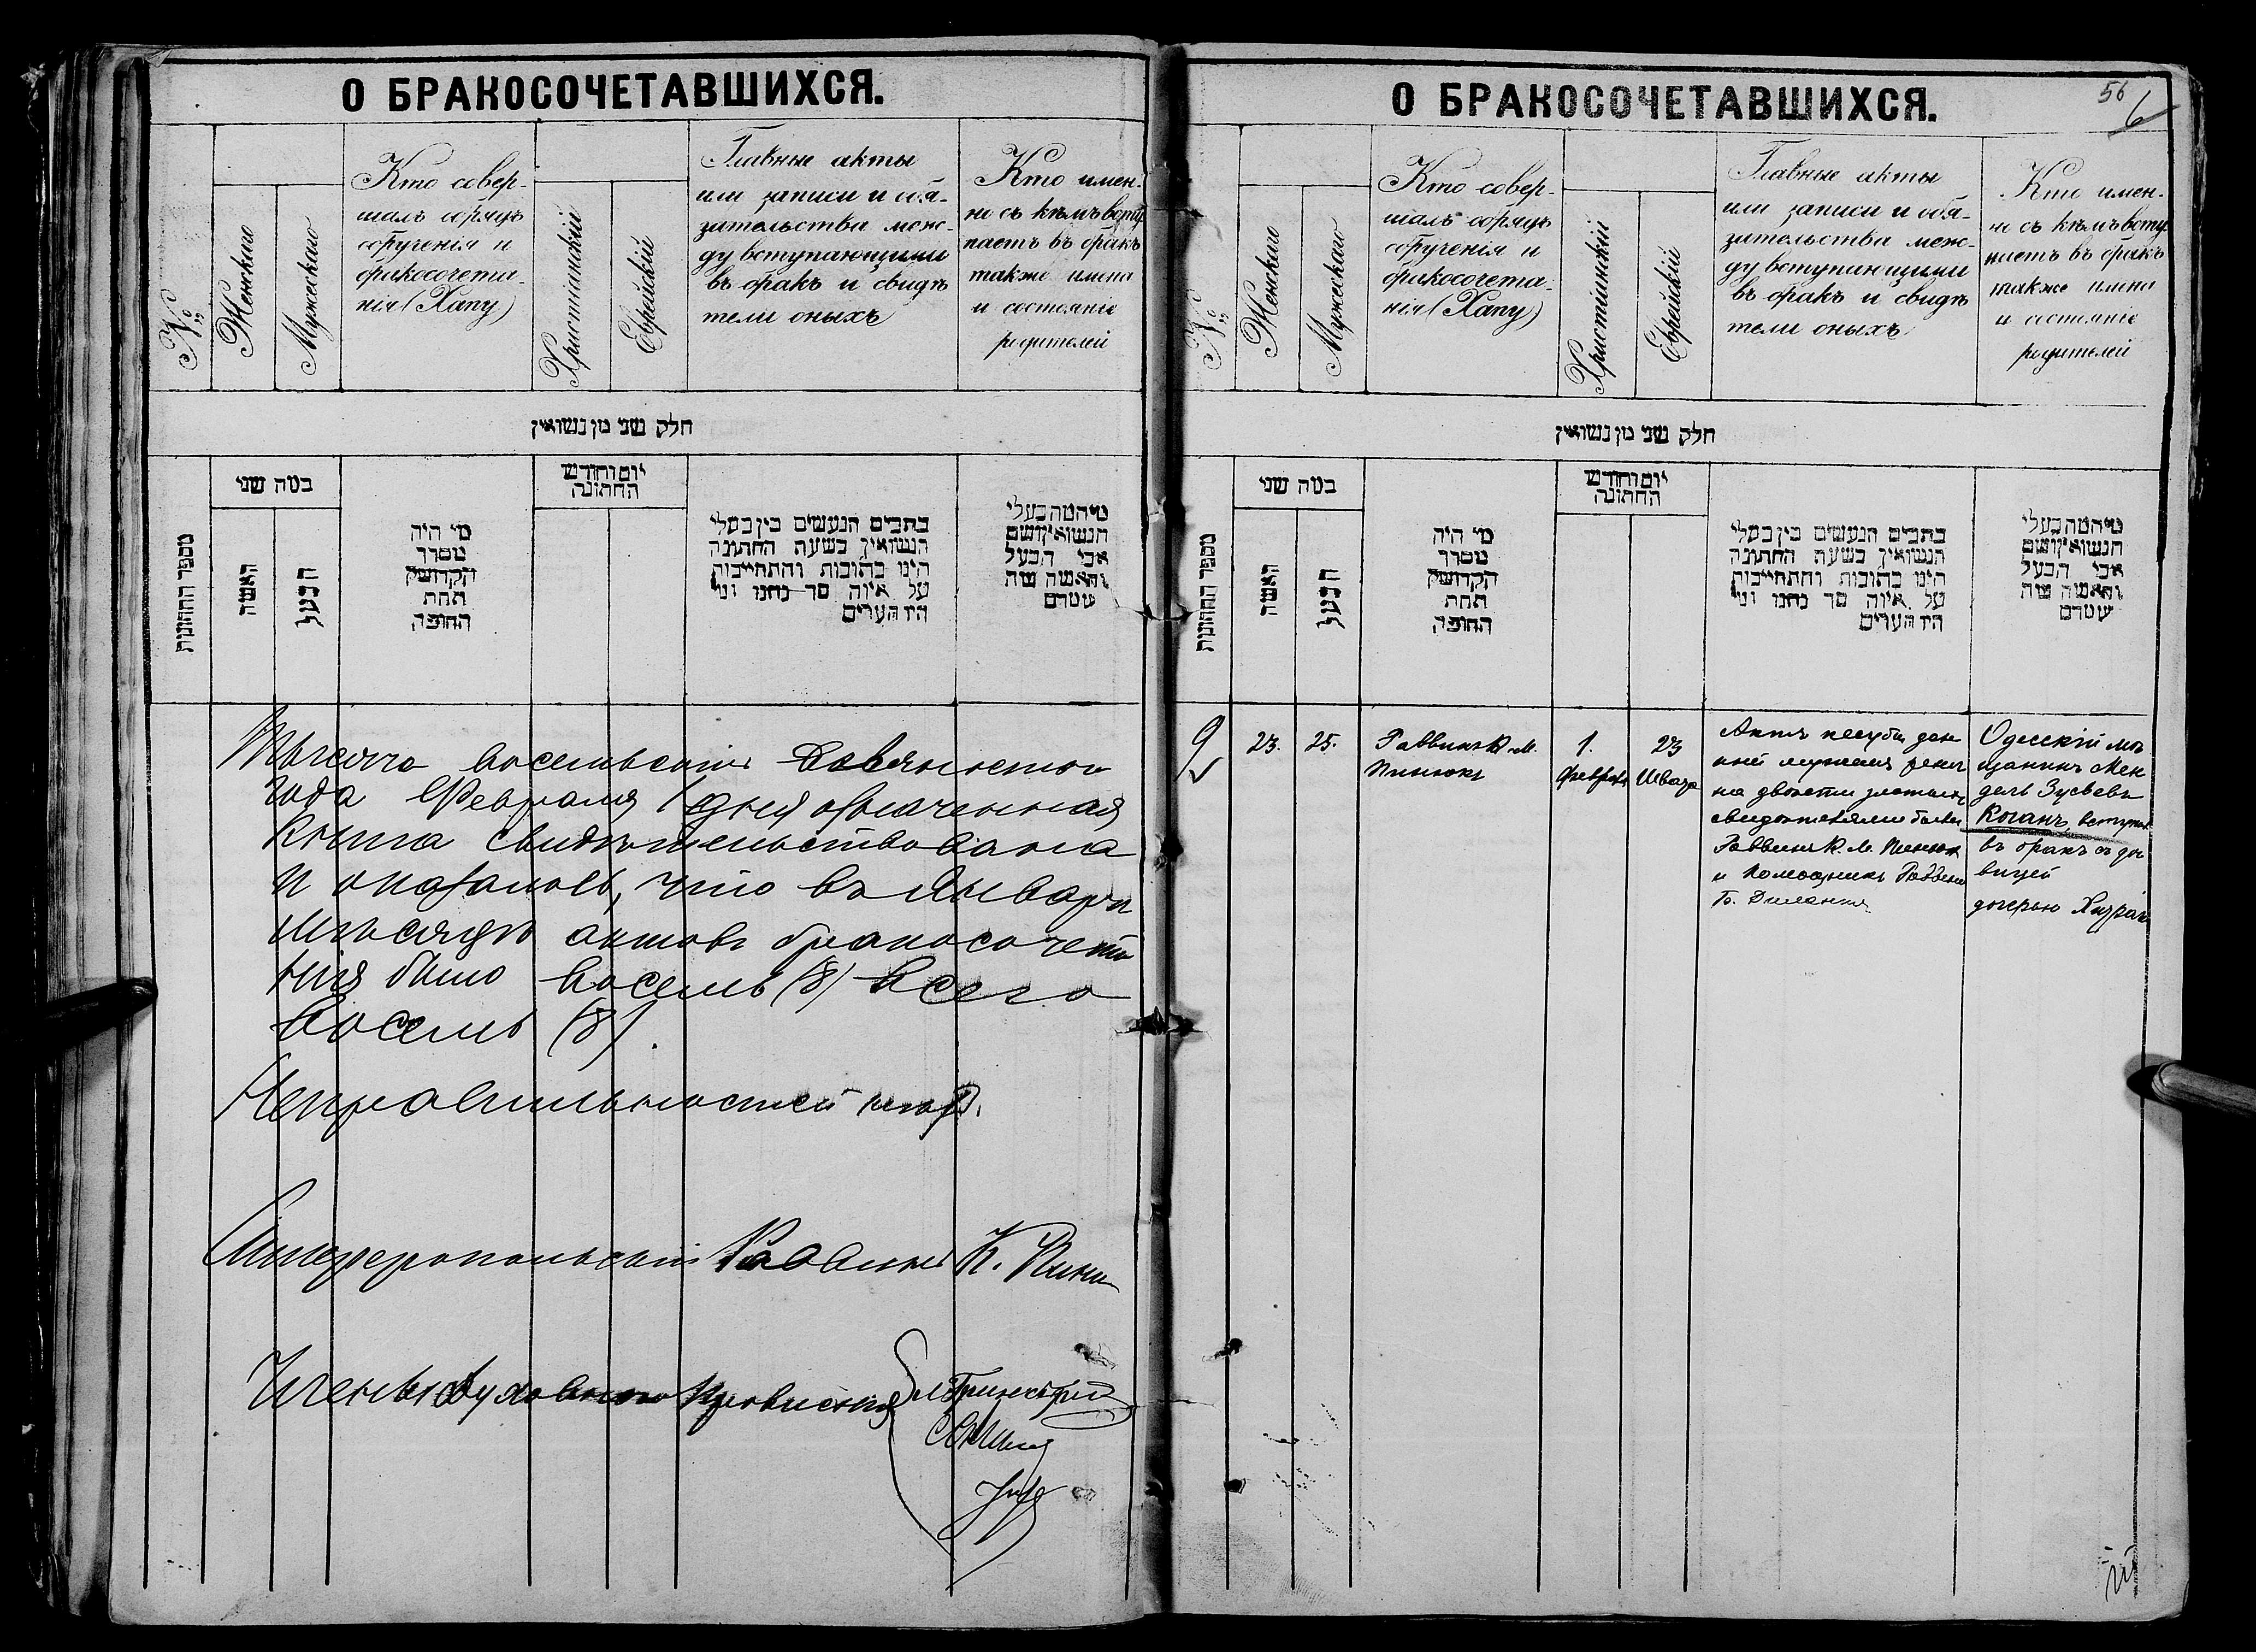 О БРАКОСОЧЕТАВШИХСЯ.
№
Женскаго
Мужескаго
Кто совер-
шалъ обрядъ
обрученія и
бракосочета-
нія (Хапу)
Христіанскій
Еврейскій
Главные акты
или записи и обя-
зательства меж-
ду вступающими
въ бракъ и свидѣ
тели оныхъ
Кто имен-
но съ кѣмъ всту
паетъ въ бракъ
также имена
и состояніе
родителей
חלק שני מן נשואין
מספר החתונות
כמה שני
האשה
הבעל
מי היה
מסדר
הקדושין
תחת
החופה
יום וחודש
החתונה
כתבים הנעשים בין בעלי
הנשואין בשעת החתונה
היינו כתובות והתחייבות
על איזה סך נתנו ומי
היו העדים
מי המה בעלי
הנשואין ושם
אבי הבעל
והאשה מה
שמם
Тысяча восемьсотъ девяностого
года Февраля 1 дня означенная
книга свидѣтельствована
и оказалось, что въ Январѣ
мѣсяцѣ актовъ бракосочета
нія было восемь (8) всего
восемь (8).
Неправильностей нѣтъ.
Симферопольскій Раввинъ К. Пинюкъ
Члены Духовного Правленія
О БРАКОСОЧЕТАВШИХСЯ.
56
6
№
Женскаго
Мужескаго
Кто совер-
шалъ обрядъ
обрученія и
бракосочета-
нія (Хапу)
Христіанскій
Еврейскій
Главные акты
или записи и обя-
зательства меж-
ду вступающими
въ бракъ и свидѣ
тели оныхъ
Кто имен-
но съ кѣмъ всту
паетъ въ бракъ
также имена
и состояніе
родителей
חלק שני מן נשואין
מספר החתונות
כמה שני
האשה
הבעל
מי היה
מסדר
הקדושין
תחת
החופה
יום וחודש
החתונה
כתבים הנעשים בין בעלי
הנשואין בשעת החתונה
היינו כתובות והתחייבות
על איזה סך נתנו ומי
היו העדים
מי המה בעלי
הנשואין ושם
אבי הבעל
והאשה מה
שמם
9
23.
25.
Раввинъ К. М.
Пинюкъ
1.
Февраля
23
Шватъ
Актъ кесуба дан
ный мужемъ женѣ
на двѣсти злотыхъ
свидѣтелями были
Раввинъ К. М. Пинюкъ
и Помощникъ Раввина
Одесскій мѣ
щанинъ Мен
дель Зусьевъ
Коганъ, вступилъ
въ бракъ съ дѣ
вицей
дочерью